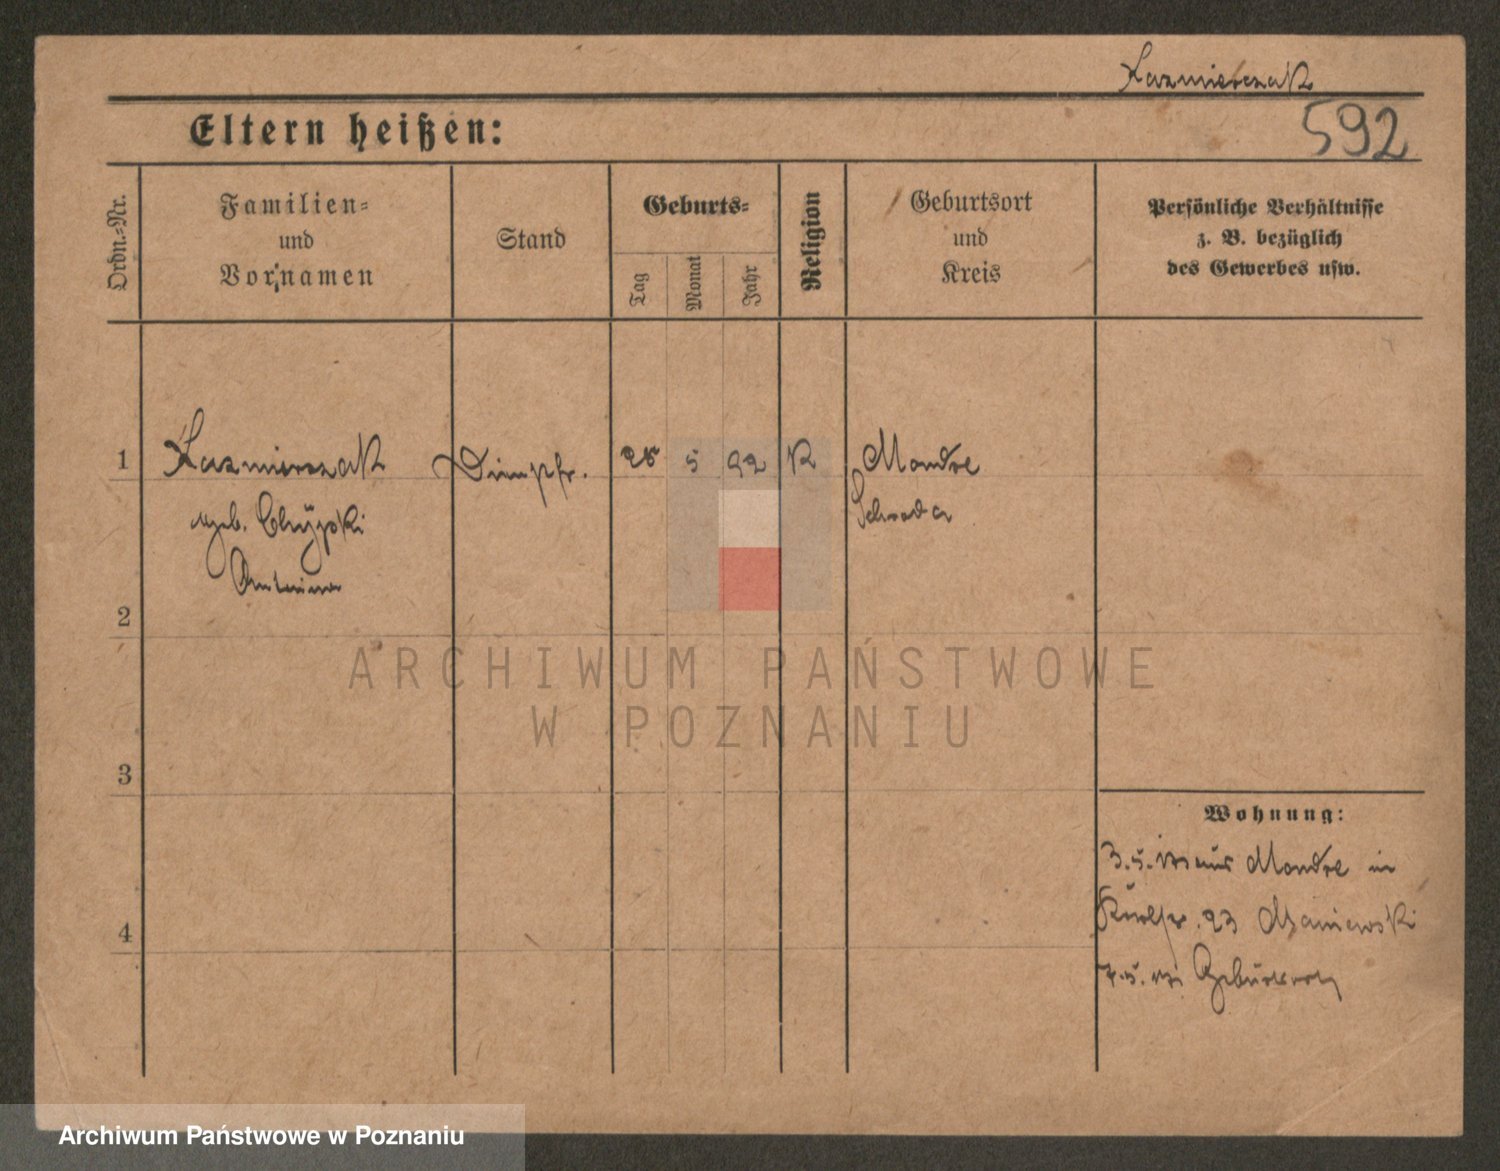 Kazmierczak
Eltern heißen:
592
Ordn.-Nr.
Familien-
und
Vornamen
Stand
Geburts-
Tag
Monat
Jahr
Religion
Geburtsort
und
Kreis
Persönliche Verhältnisse
z. B. bezüglich
des Gewerbes usw.
1
Kazmierczak
25 5 92 K
Mondre
geb. Chÿpski
Schroda
Antonina
2
ARCHIWUM PAŃSTWOWE
W POZNANIU
3
Wohnung:
3.5. aus Mondre in
23
4
7.5.
Archiwum Państwowe w Poznaniu